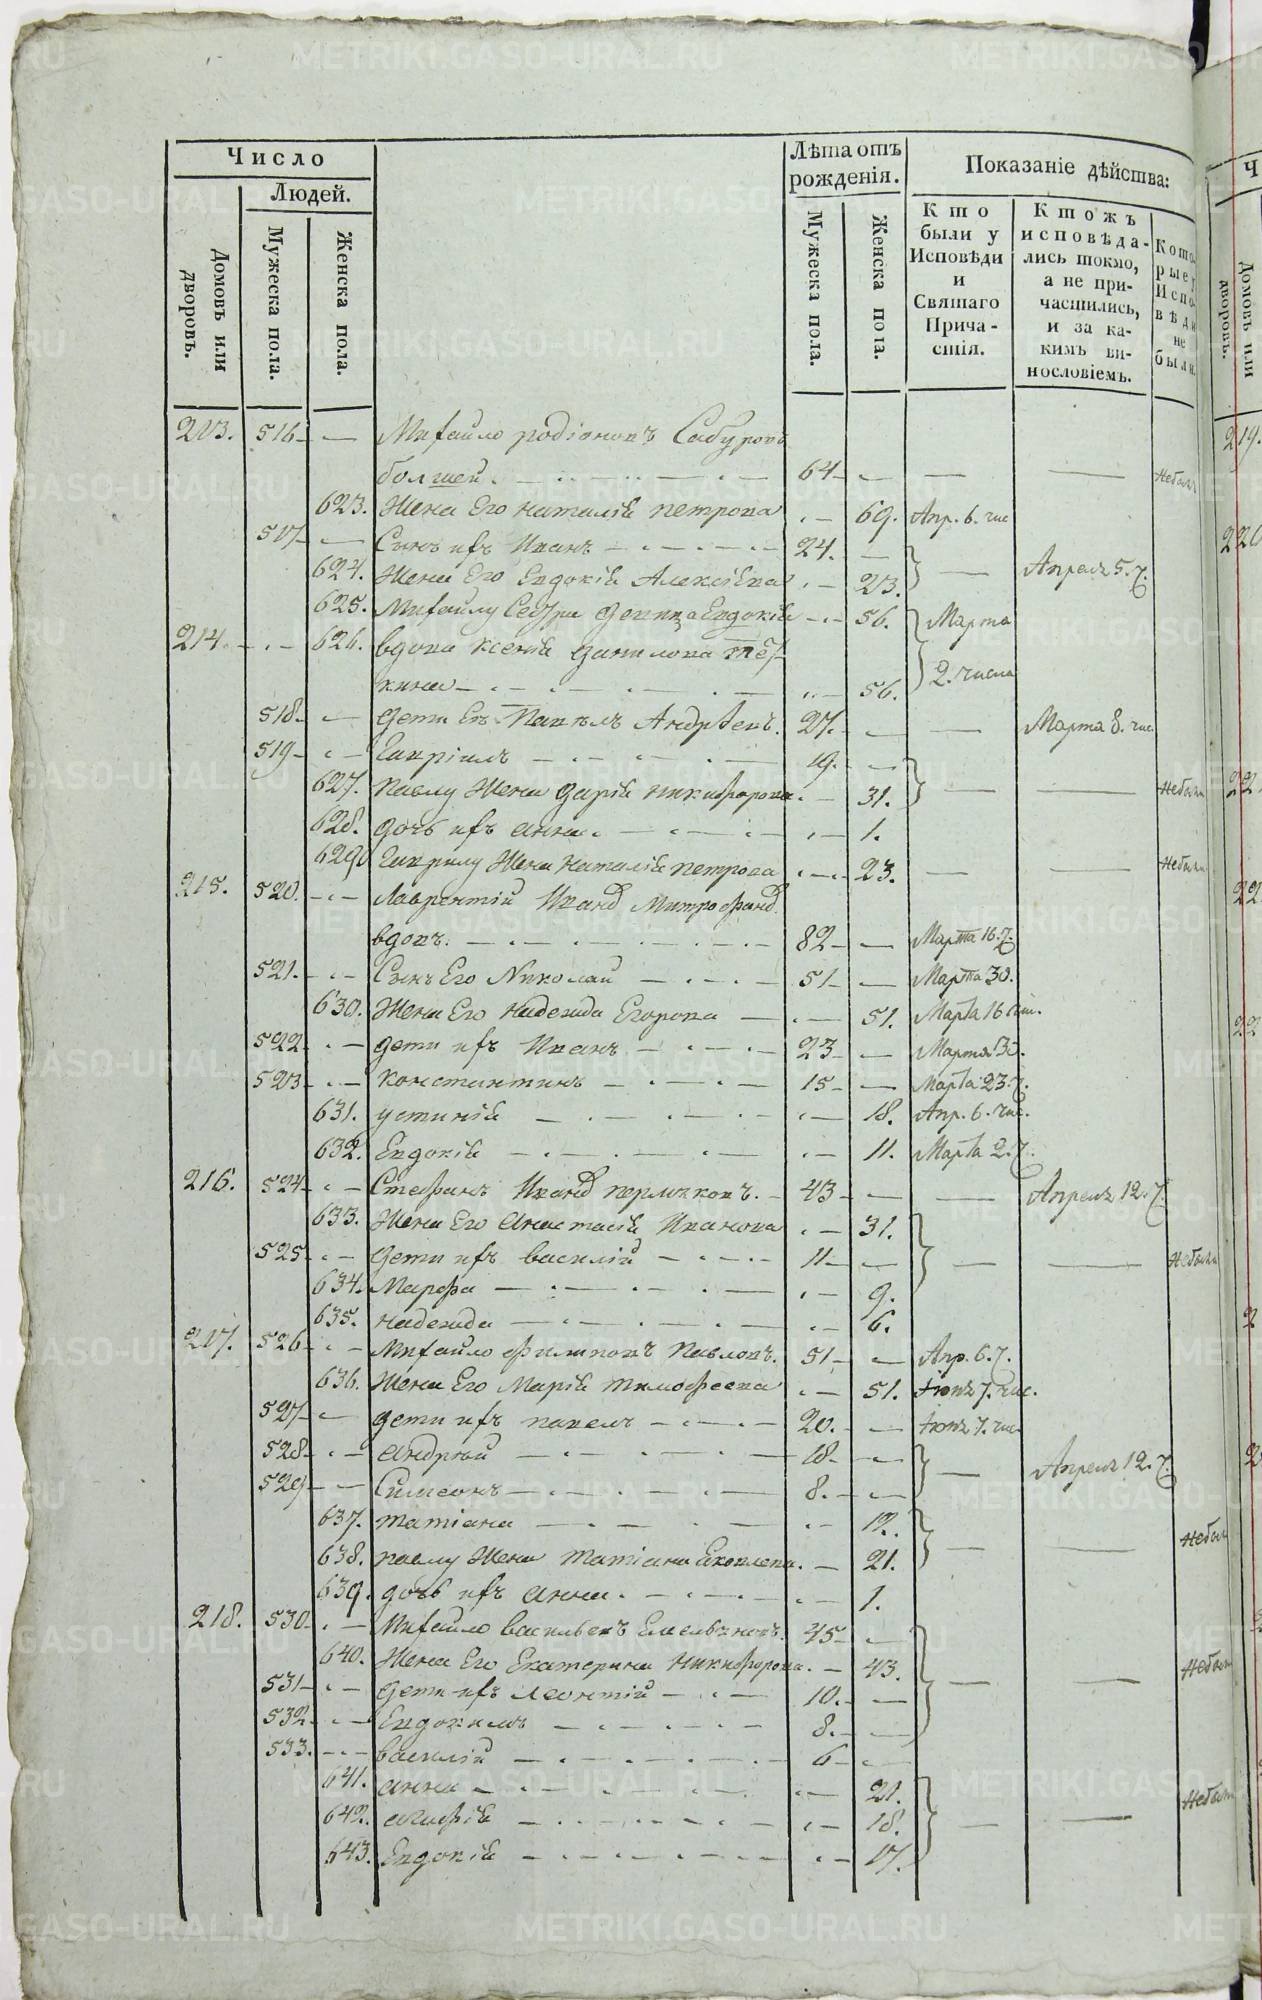 Число
Людей.
Домовъ или дворовъ.
Мужеска пола.
Женска пола.
Лѣта отъ рожденія.
Мужеска пола.
Женска пола.
Показаніе дѣйства:
Кто были у Исповѣди и Святаго Причастія.
Ктожъ исповѣдались токмо, а не причастились, и за какимъ винословіемъ.
Которые у Исповѣди не были.
213. 516 — Михайло родіоновъ Сабуровъ
болшей. 64 — — — Небылъ
623. Жена Его наталіѣ петрова — 69. Апр. 6. чис
517 — Сынъ ихъ Иванъ 24. —
624. Жена Его Евдокіѣ Алексіѣва — 23. — Апреля 5. ч.
625. Михайлу Сестра девица Евдокіѣ — 56. Марта
214. — 626. вдова ксеніѣ данилова
кина — 56. 2. числа
518. — дети Еѣ Павелъ Андрѣевъ. 27. — — Марта 8. чис.
519 — Гавріилъ 19. —
627. павлу Жена даріѣ никифорова. — 31. — — Небыли
628. дочь ихъ анна. — 1.
629. Гаврилу Жена Наталіѣ петрова — 23. — — Небыла
215. 520. — Лаврентій Иванъ Митрофанъ
вдовъ. 82 — Марта 16. ч.
521. — Сынъ Его Николай 51 — Марта 30.
630. Жена Его надежда Егорова — 51. Марта 16 чис.
522 — дети ихъ Иванъ 23 — Марта 30.
523 — константинъ 15 — Марта 23. ч.
631. устиніѣ — 18. Апр. 6. чис.
632. Евдокіѣ — 11. Марта 2. ч.
216. 524 — Стефанъ Иванъ пермяковъ. 43 — — Апреля 12. ч.
633. Жена Его Анастасіѣ Иванова — 31.
525 — дети ихъ василій 11 — — — Небыли
634. Марфа — 9.
635. надежда — 6.
217. 526 — Михайло филиповъ Павловъ. 51 — Апр. 6. ч.
636. Жена Его Маріѣ тимофеева — 51. Іюнѣ 7. чис.
527 — дети ихъ павелъ 20. — Іюнѣ 7. чис.
528 — андрѣй 18 —
529 — Симеонъ 8. — — Апреля 12. ч.
637. татіана — 12.
638. павлу Жена татіана Яковлева. — 21. — — Небыли
639. дочь ихъ анна. — 1.
218. 530 — Михайло васильевъ Емельяновъ. 45 —
640. Жена Его Екатерина Никифорова. — 43.
531 — дети ихъ леонтій 10. — — — Небыли
532 — Евдокимъ 8. —
533. — василій 6 —
641. анна — 21.
642. агафіѣ — 18. — — Небыли
643. Евдокіѣ — 17.